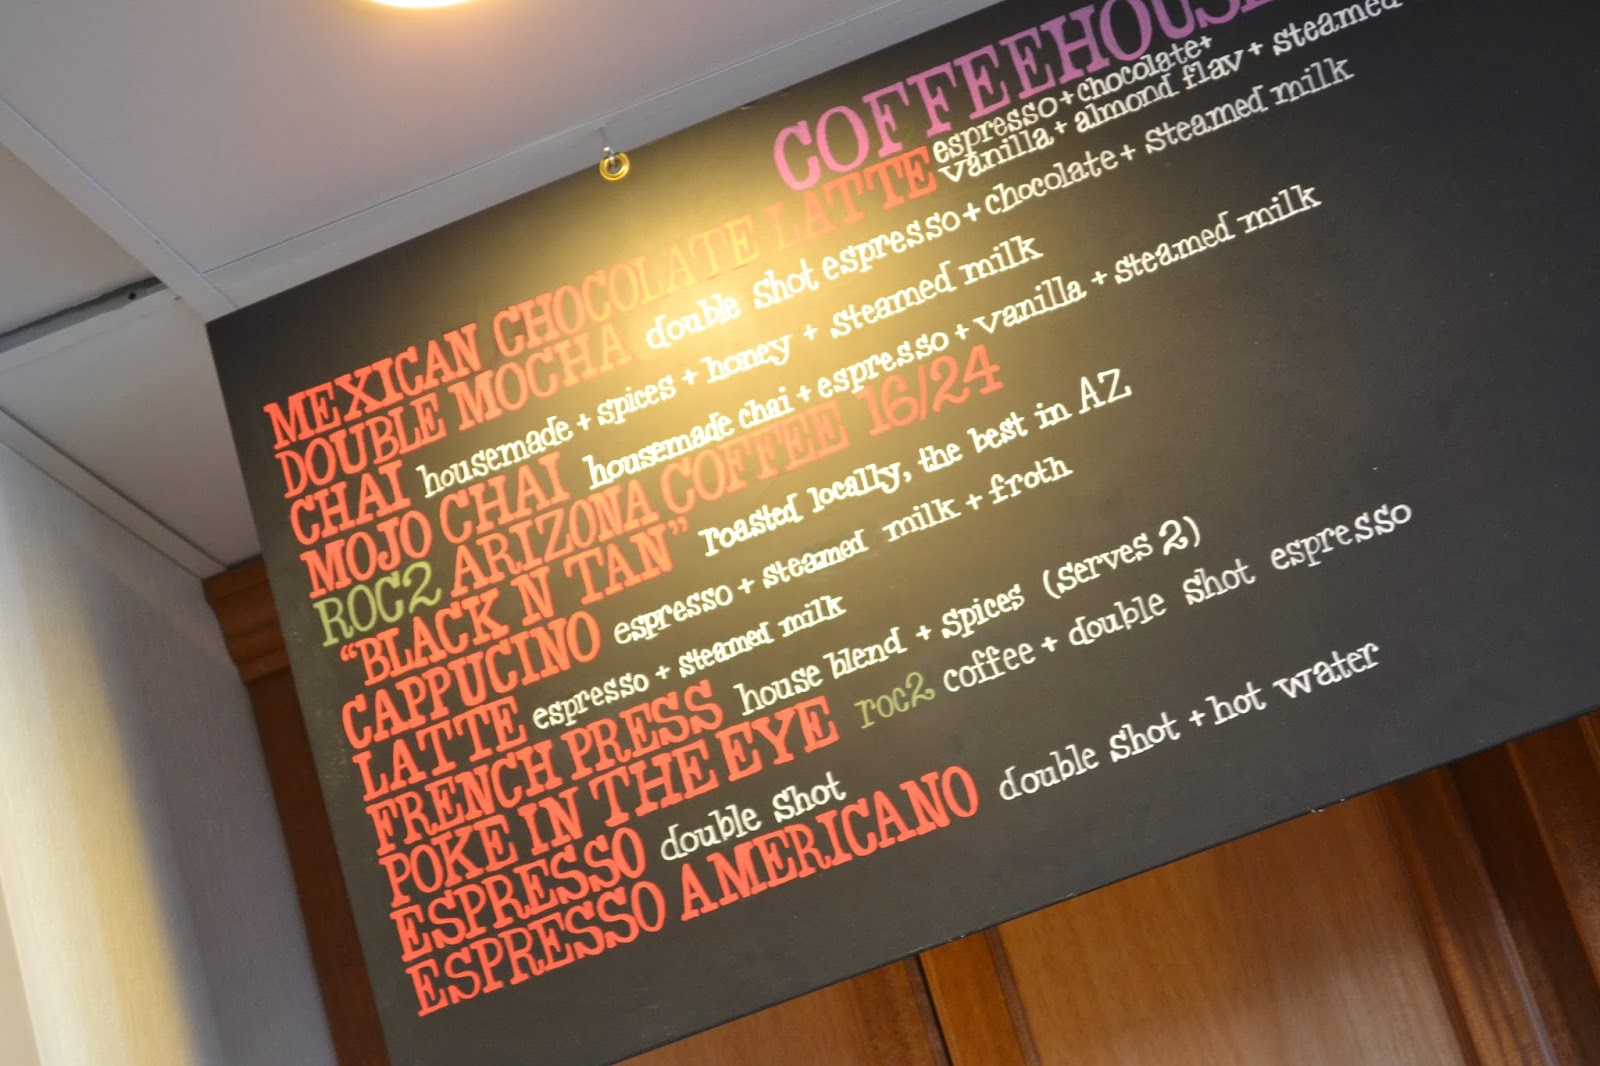 COFFEEHOUSE
MEXICAN CHOCOLATE LATTE espresso + chocolate +
vanilla + almond flav + steamed
DOUBLE MOCHA double shot espresso + chocolate + steamed milk
CHAI housemade + spices + honey + steamed milk
MOJO CHAI housemade chai + espresso + vanilla + steamed milk
ROC2 ARIZONA COFFEE 16/24
“BLACK N TAN” roasted locally, the best in AZ
CAPPUCINO espresso + steamed milk + froth
LATTE espresso + steamed milk
FRENCH PRESS house blend + spices (serves 2)
POKE IN THE EYE roc2 coffee + double shot espresso
ESPRESSO double shot
ESPRESSO AMERICANO double shot + hot water